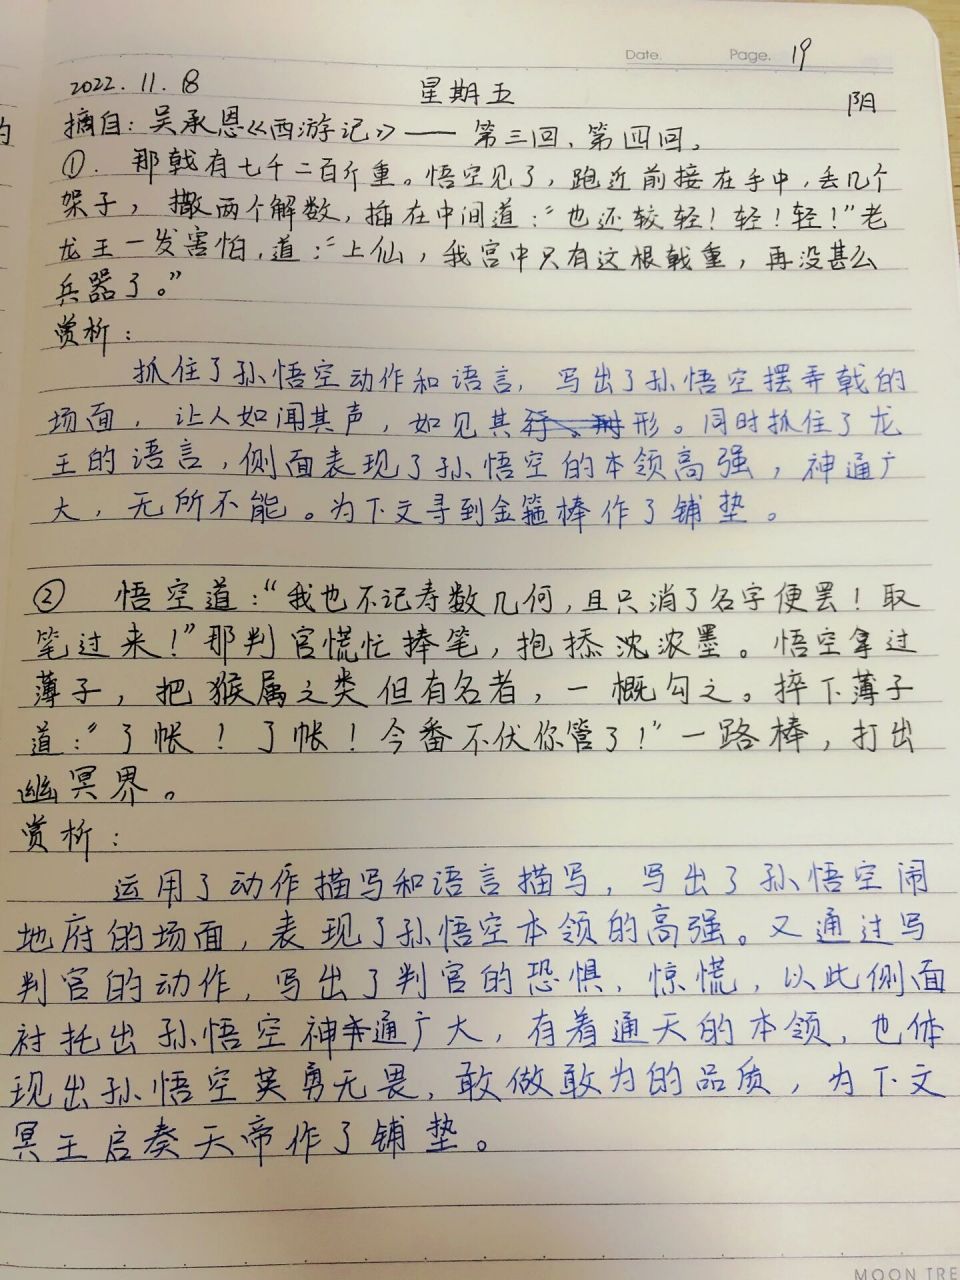 Date. Page. 19
2022.11.18 星期五 阴
摘自：吴承恩《西游记》—— 第三回、第四回。
①. 那戟有七千二百斤重。悟空见了，跑近前接在手中，丢几个
架子，撒两个解数，插在中间道：“也还较轻！轻！轻！”老
龙王一发害怕，道：“上仙，我宫中只有这根戟重，再没甚么
兵器了。”
赏析：
抓住了孙悟空动作和语言，写出了孙悟空摆弄戟的
场面，让人如闻其声，如见其形。同时抓住了龙
王的语言，侧面表现了孙悟空的本领高强，神通广
大，无所不能。为下文寻到金箍棒作了铺垫。
② 悟空道：“我也不记寿数几何，且只消了名字便罢！取
笔过来！”那判官慌忙捧笔，抱掭沈浓墨。悟空拿过
薄子，把猴属之类但有名者，一概勾之。摔下薄子
道：“了帐！了帐！今番不伏你管了！”一路棒，打出
幽冥界。
赏析：
运用了动作描写和语言描写，写出了孙悟空闹
地府的场面，表现了孙悟空本领的高强。又通过写
判官的动作，写出了判官的恐惧、惊慌，以此侧面
衬托出孙悟空神通广大，有着通天的本领，也体
现出孙悟空英勇无畏，敢做敢为的品质，为下文
冥王启奏天帝作了铺垫。
MOON TRE